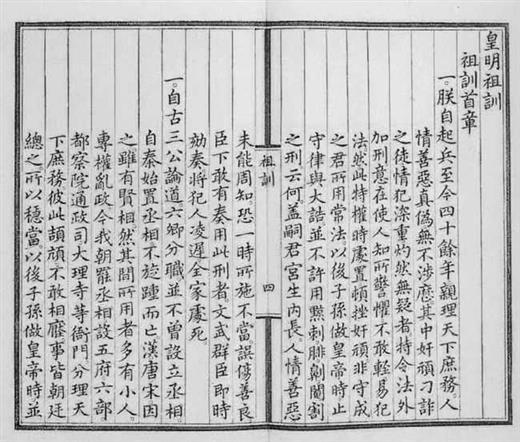 皇明祖訓
祖訓首章
一。朕自起兵至今四十餘年親理天下庶務人
情善惡真偽無不涉歷其中奸頑刁詐
之徒情犯深重灼然無疑者特令法外
加刑意在使人知所警懼不敢輕易犯
法然此特權時處置頓挫奸頑非守成
之君所用常法以後子孫做皇帝時止
守律與大誥並不許用黥刺腓劓閹割
之刑云何。盖嗣君宮生內長。人情善惡
祖訓
四
未能周知。恐一時所施不當誤傷善良
臣下敢有奏用此刑者文武群臣即時
劾奏將犯人凌遲全家處死
一。自古三公論道六卿分職並不曾設立丞相。
自秦始置丞相不旋踵而亡漢唐宋因
之雖有賢相然其間所用者多有小人。
專權亂政今我朝罷丞相設五府六部
都察院通政司大理寺等衙門分理天
下庶務彼此頡頏不敢相壓事皆朝廷
總之所以穩當以後子孫做皇帝時並